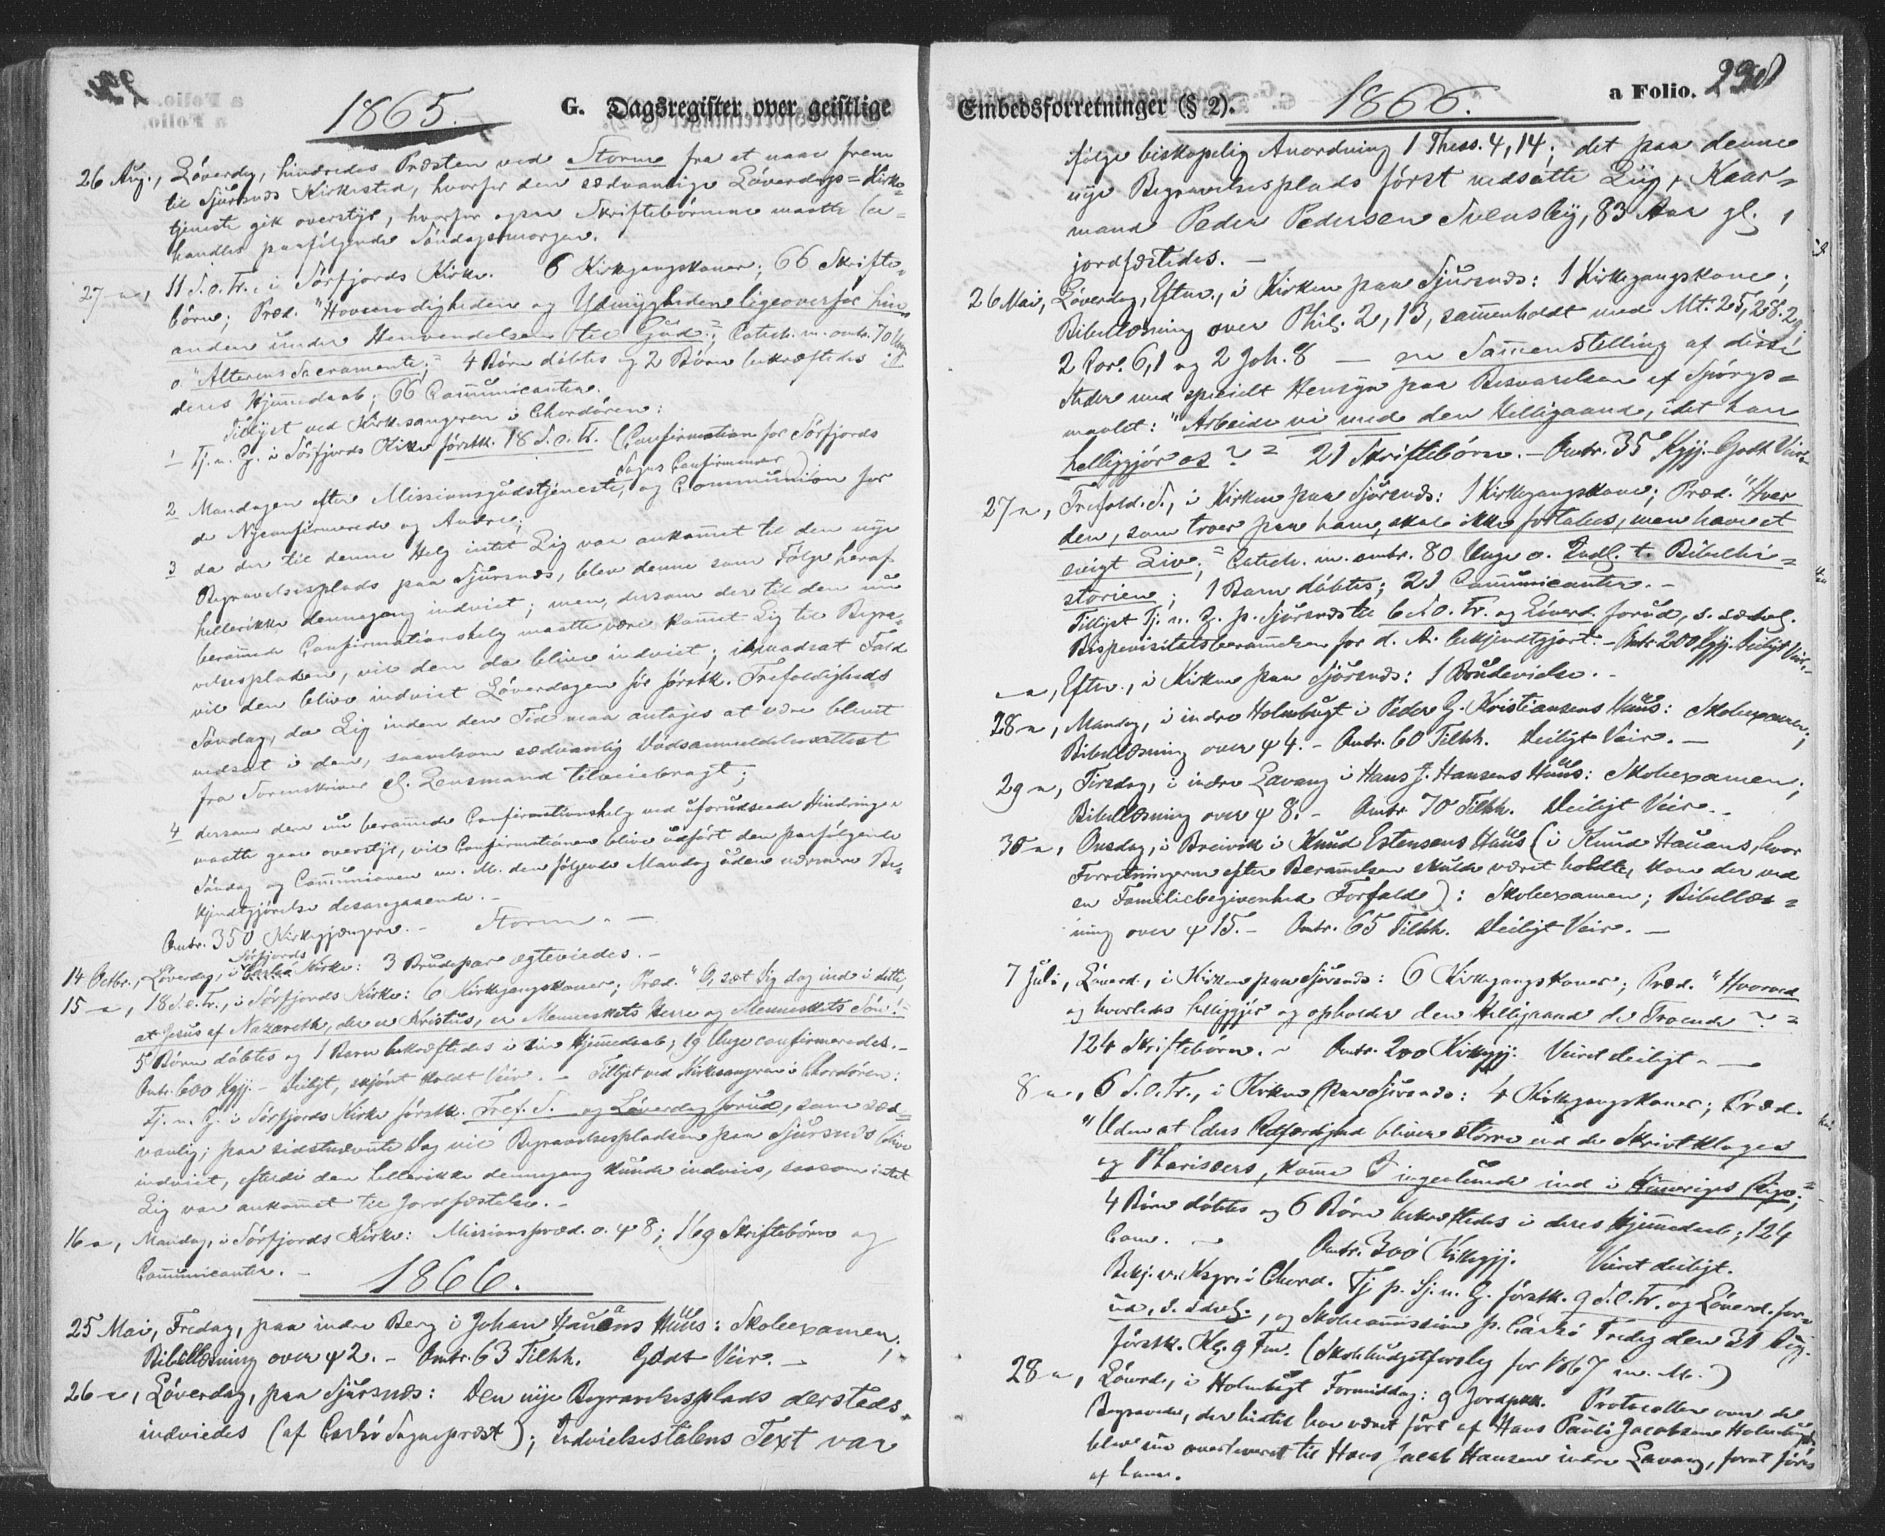 1865. G. Dagsregister over geistlige
26 Aug., Löverdag, hindredes Præsten ved Storm fra at naae frem
til Sjursnæs Kirkested, hvorfor den sædvanlige Löverdags-Kirke-
tjeneste gik overstyr, hvorfor ogsaa Skriftebörnene maatte be-
handles paafölgende Söndagsmorgen.
27 - , 11 S. o. Tr., i Sörfjords Kirke. 6 Kirkegangskoner; 66 Skrifte-
börn; Præd. "Hovmodigheden og Ydmygheden ligeoverfor hin-
anden under Henvendelsen til Gud"; Catech. m. omtr. 70 Unge
o. "Alterens Sacramente." 4 Börn döbtes og 2 Börn bekræftedes i
deres Hjemmedaab; 66 Communicanter.
Tillyst ved Kirkesangeren i Chordören:
1 Tj. n. G. i Sörfjords Kirke förstk. 18 S. o. Tr. (Confirmation for Sörfjords
Sogns Confirmander)
2 Mandagen efter Missionsgudstjeneste, og Communion for
de Nyconfirmerede og Andre;
3 da der til denne Helg intet Lig var ankommet til den nye
Begravelsesplads paa Sjursnæs, blev denne som Fölge heraf
hellerikke dennegang indviet; men, dersom der til den nu
berammede Confirmationshelg maatte være kommet Lig til Begra-
velsespladsen, vil den da blive indviet; i modsat Fald
vil den blive indviet Löverdagen för förstk. Trefoldigheds
Söndag, da Lig inden den Tid maa antages at være blevet
nedsat i den, saavelsom sædvanlig Dödsanmeldelsesattest
fra Sorenskriver el. Lensmand tilveiebragt;
4 dersom den nu berammede Confirmationshelg ved uforudseede Hindringer
maatte gaae overstyr, vil Confirmationen blive udfört den paafölgende
Söndag og Communionen m. M. den fölgende Mandag uden nærmere Be-
kjendtgjörelse desangaaende. -
Omtr. 350 Kirkegjængere. - Storm. -
14 Octbr., Löverdag, i Sörfjords Kirke: 3 Brudepar ægteviedes. -
15 - , 18 S. o. Tr., i Sörfjords Kirke: 6 Kirkegangskoner; Præd. "O, sæt Dig dog ind i dette,
at Jesus af Nazareth, der er Kristus, er Menneskets Herre og Menneskets Sön!"
5 Börn döbtes og 1 Barn bekræftedes i sin Hjemmedaab; 19 Unge confirmeredes. -
Omtr. 600 Kgj. - Deiligt, skjönt koldt Veir. - Tillyst ved Kirkesangeren i Chordören:
Tj. n. G. i Sörfjords Kirke förstk. Tref. S. og Löverdag forud, som sæd-
vanlig; paa sidstnævnte Dag vil Begravelsespladsen paa Sjursnæs blive
indviet, efterdi den hellerikke dennegang kunde indvies, saasom intet
Lig var ankommet til Jordfæstelse. -
16 - , Mandag, i Sörfjords Kirke: Missionspræd. o. ψ 8; 169 Skriftebörn og
Communicanter. -
1866.
25 Mai, Fredag, paa indre Berg i Johan Hauans Huus: Skoleexamen;
Bibellæsning over ψ 2. - Omtr. 63 Tilhh. Godt Veir. -
26 - , Löverdag, paa Sjursnæs: Den nye Begravelsesplads dersteds
indviedes (af Carlsö Sognepræst); Indvielsestalens Text var
Embedsforretninger (§ 2). 1866. a Folio. 230
ifölge biskopelig Anordning 1 Thess. 4, 14; det paa denne
nye Begravelsesplads först nedsatte Lig, Kaar-
mand Peder Pedersen Svensby, 83 Aar gl.,
jordfæstedes. -
26 Mai, Löverdag, Efterm., i Kirken paa Sjursnæs: 1 Kirkegangskone;
Bibellæsning over Phil. 2, 13, sammenholdt med Mt. 25, 28. 29
2 Cor. 6, 1 og 2 Joh. 8 - en Sammenstilling af disse
Steder med specielt Hensyn paa Besvarelsen af Spörgs-
maalet: "Arbeide vi med den Helligaand, idet han
helliggjör os?" 21 Skriftebörn. - Omtr. 35 Kgj. - Godt Veir.
27 - , Trefold. S., i Kirken paa Sjursnæs: 1 Kirkegangskone; Præd. "Hver
den, som troer paa ham, skal ikke fortabes, men have et
evigt Liv"; Catech. m. omtr. 80 Unge o. Indl. t. Bibelhi-
storien; 1 Barn döbtes; 21 Communicanter. -
Tillyst Tj. n. G. p. Sjursnæs til 6 S. o. Tr. og Löverd. forud, s. sædvl.
Bispevisitatsberammelsen for d. A. bekjendtgjort. - Omtr. 200 Kgj. Deiligt Veir. -
- , Efterm., i Kirken paa Sjursnæs: 1 Brudevielse. -
28 - , Mandag, i indre Holmbugt i Peder G. Kristiansens Huus: Skoleexamen;
Bibellæsning over ψ 4. - Omtr. 60 Tilhh. Deiligt Veir. -
29 - , Tirsdag, i indre Lavang i Hans J. Hansens Huus: Skoleexamen;
Bibellæsning over ψ 8. - Omtr 70 Tilhh. Deiligt Veir. -
30 - , Onsdag, i Breivik i Knud Estensens Huus (i Knud Hauans, hvor
Forretningerne efter Berammelsen skulde været holdte, kom der ved
en Familiebegivenhed Forfald): Skoleexamen; Bibellæs-
ning over ψ 15. - Omtr. 65 Tilhh. Deiligt Veir. -
7 Juli, Löverd., i Kirken paa Sjursnæs: 6 Kirkegangskoner; Præd. "Hvorved
og hvorledes helliggjör og opholder den Helligaand de Troende?"
124 Skriftebörn. - Omtr. 200 Kirkegj. Veiret deiligt. -
8 - , 6 S. o. Tr., i Kirken paa Sjursnæs: 4 Kirkegangskoner; Præd.
"Uden at Eders Retfærdighed bliver större end de Skriftkloges
og Pharisæers, komme I ingenlunde ind i Himmeriges Rige";
4 Börn döbtes og 6 Börn bekræftedes i deres Hjemmedaab; 124
Com. - Omtr. 300 Kirkegj. Veiret deiligt.
Bekj. v. Ksgr. i Chord. Tj. p. Sj. n. G. förstk. 9 S. o. Tr. og Löverd. for-
ud, s. sdvl., og Skolecommission p. Carlsö Fredag den 31 Aug.
förstk. Kl. 9 Fm. (Skolebudgetforslag for 1867 m. M.)
28 - , Löverd., i Holmbugt Formiddag: 9 Jordpaak. Protocollen over de
Begravede, der hidtil har været fört af Hans Pauli Jacobsen Holmbugt,
blev nu overleveret til Hans Jacob Hansen indre Lavang, forat föres
af ham.